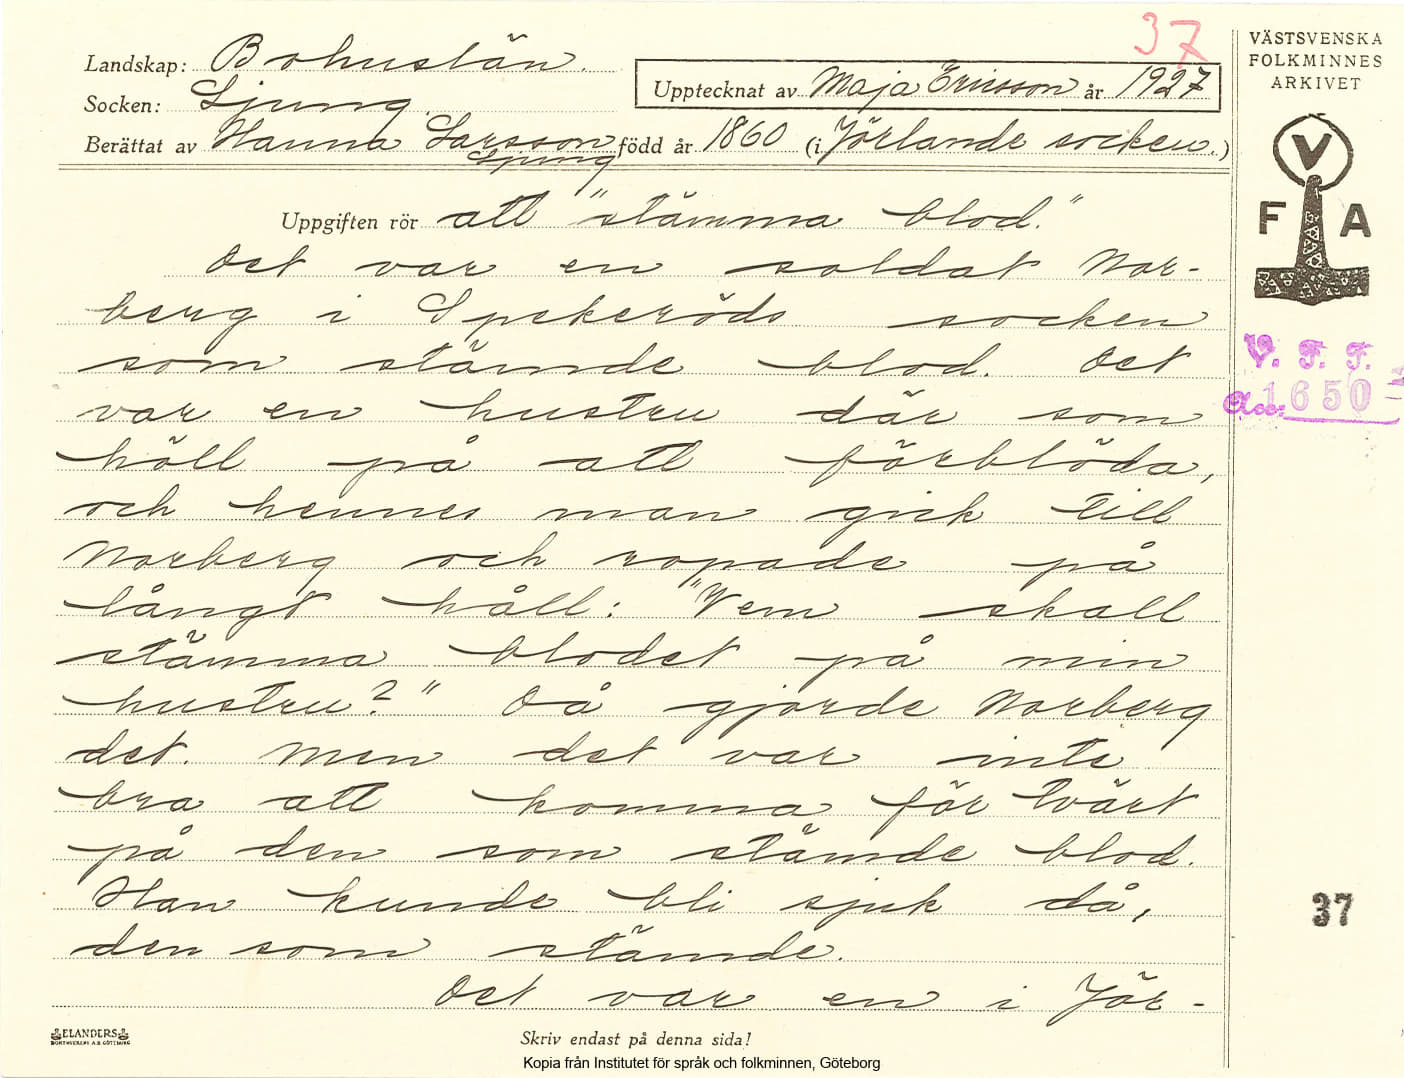 37
Landskap: Bohuslän
Socken: Ljung
Upptecknat av Maja Ericsson år 1927
Berättat av Hanna Larsson född år 1860 (i Jörlande socken.)
Ljung
VÄSTSVENSKA
FOLKMINNES
ARKIVET
V
F A
V. F. F.
Acc. 1650
Uppgiften rör att "stämma blod."
Det var en soldat Nor-
berg i Spekeröds socken
som stämde blod. Det
var en hustru där som
höll på att förblöda,
och hennes man gick till
Norberg och ropade på
långt håll: "Vem skall
stämma blodet på min
hustru?" Då gjorde Norberg
det. Men det var inte
bra att komma för tvärt
på den som stämde blod.
Han kunde bli sjuk då,
den som stämde.
Det var en i Jör-
37
ELANDERS
BOKTRYCKERI A.B. GÖTEBORG
Skriv endast på denna sida!
Kopia från Institutet för språk och folkminnen, Göteborg